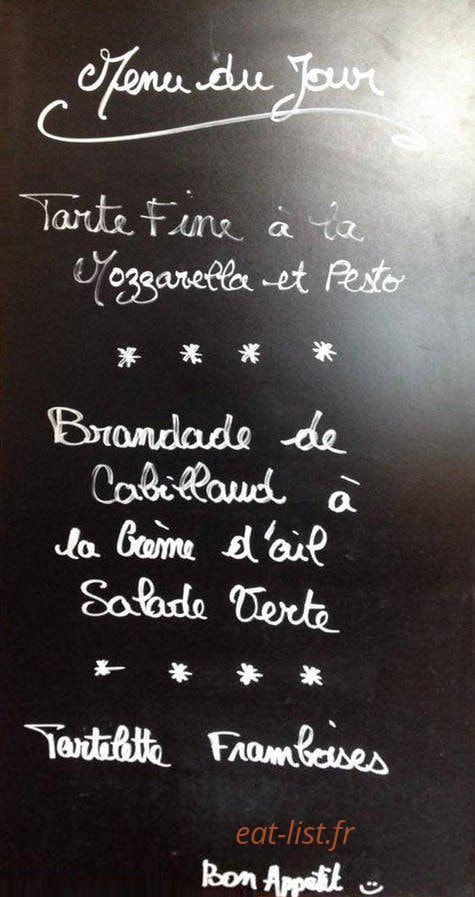 Menu du Jour
Tarte Fine à la
Mozzarella et Pesto
* * * *
Brandade de
Cabillaud à
la Crème d'ail
Salade Verte
* * * *
Tartelette Framboises
eat-list.fr
Bon Appetit :)